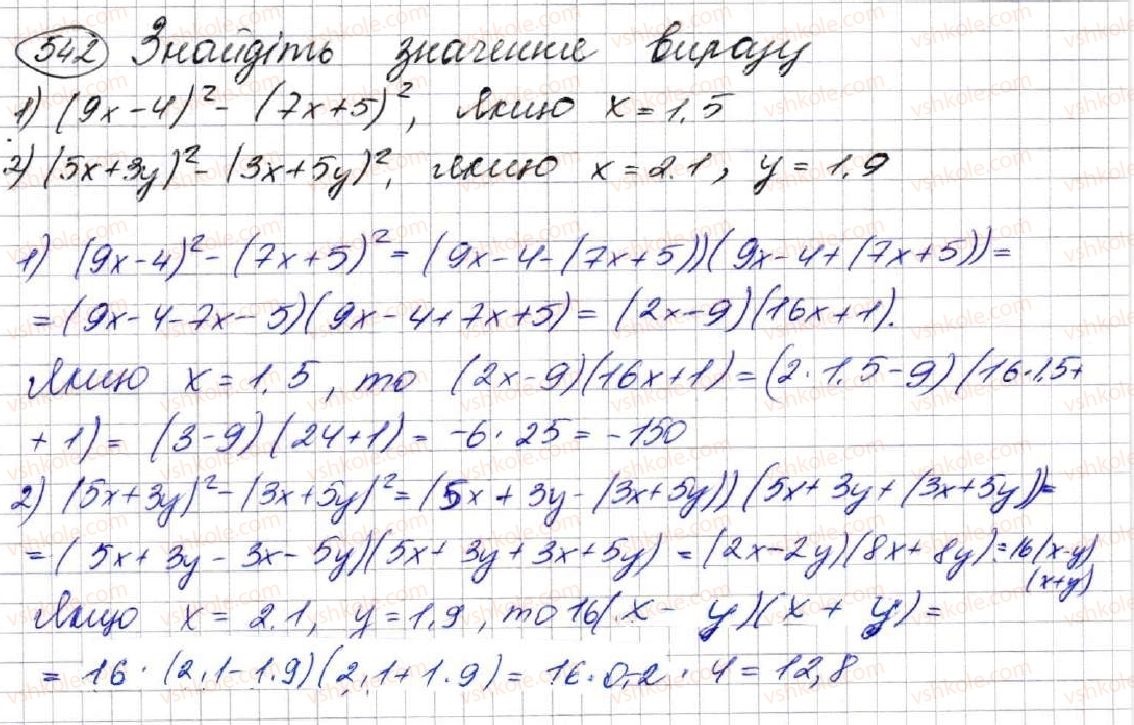 542 Знайдіть значення виразу
1) (9x-4)² - (7x+5)², якщо x=1,5
2) (5x+3y)² - (3x+5y)², якщо x=2.1, y=1,9
1) (9x-4)² - (7x+5)² = (9x-4-(7x+5))(9x-4+(7x+5)) =
= (9x-4-7x-5)(9x-4+7x+5) = (2x-9)(16x+1).
Якщо x=1,5, то (2x-9)(16x+1) = (2·1,5-9)(16·1,5+
+1) = (3-9)(24+1) = -6·25 = -150
2) (5x+3y)² - (3x+5y)² = (5x+3y-(3x+5y))(5x+3y+(3x+5y)) =
= (5x+3y-3x-5y)(5x+3y+3x+5y) = (2x-2y)(8x+8y) = 16(x-y)
(x+y)
Якщо x=2.1, y=1.9, то 16(x-y)(x+y) =
= 16·(2,1-1.9)(2,1+1.9) = 16·0,2·4 = 12,8